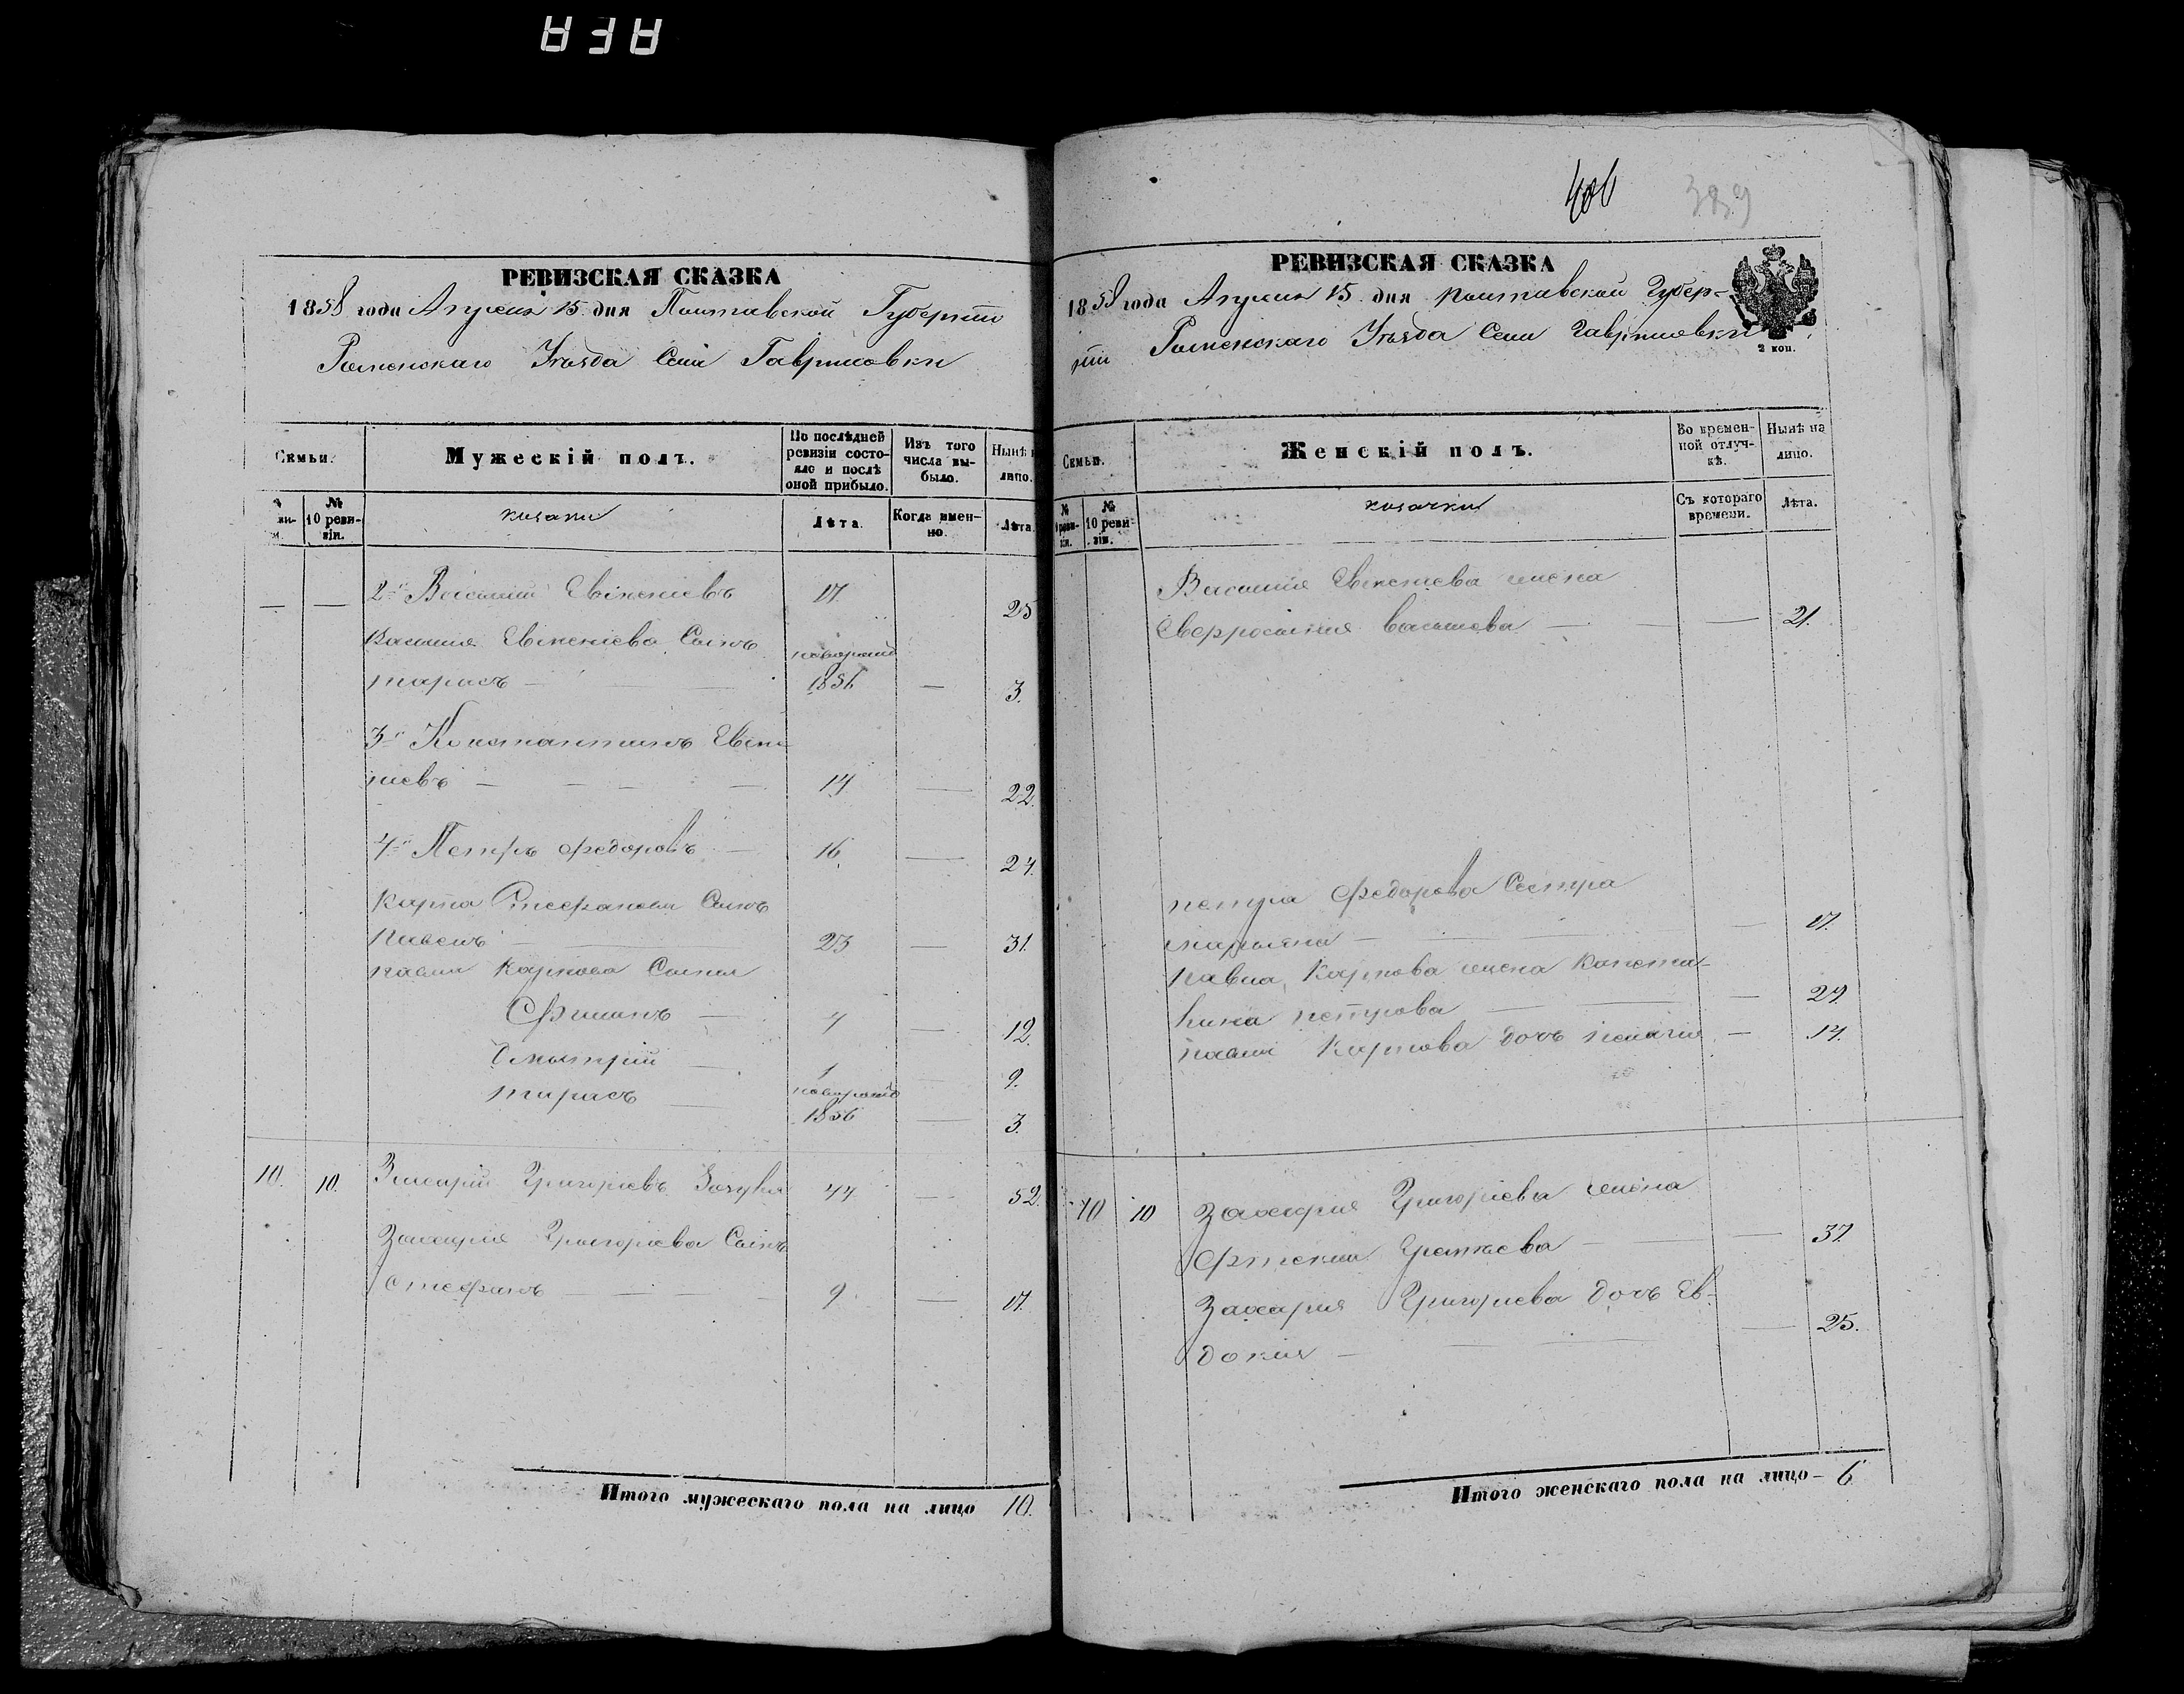 АЗА
РЕВИЗСКАЯ СКАЗКА
1858 года Апреля 15 дня Полтавской Губернiи
Роменскаго Уезда Села Гавриловки
Семьи.
Мужескій полъ.
По послѣдней ревизіи состояло и послѣ оной прибыло.
Изъ того числа выбыло.
Нынѣ лицо.
№ 10 ревизіи.
козаки
Лѣта.
Когда именно.
Лѣта.
— — 2й Василий Евѳеніевъ 17. 25
Василия Сынъ новорожд
тарасъ — 1856 — 3.
3й Константинъ
ніевъ — 14 — 22.
4й Петръ Федоровъ — 16 — 24.
Карпа Стефанова Сынъ
Павелъ — 23 — 31.
павла Карпова Сынья
Филипъ — 4 — 12.
Дмытрій — 1 9.
тарасъ — новорожд 1856 — 3.
10. 10. Захарий Григорьевъ 44 — 52.
Захария Григориева Сынъ
Стефанъ — 9. — 17.
Итого мужескаго пола на лицо 10.
406 389
РЕВИЗСКАЯ СКАЗКА
1858 года Апреля 15 дня Полтавской Губер-
нiи Роменскаго Уезда Села Гавриловки
2 коп.
Семьи.
Женскій полъ.
Во временной отлучкѣ.
Нынѣ на лицо.
№ ревизіи.
№ 10 ревизіи.
козачки
Съ котораго времени.
Лѣта.
Василия жена
васильева — — 21.
петра Федорова Сестра
марьяна — — 17.
Павла Карпова жена Конста-
петрова — — 24.
павла Карпова дочь пелагия — 14.
10 10 Захария Григориева жена
— — 37.
Захария Григориева дочь Ев-
докия — — 25.
Итого женскаго пола на лицо — 6